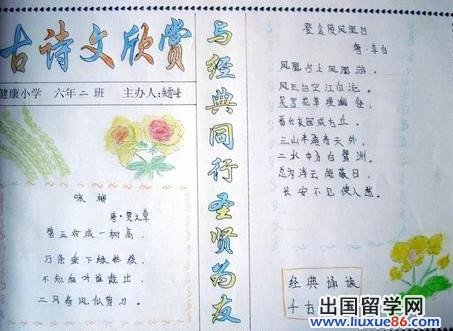 古诗文欣赏
健康小学 六年二班 主办人:
咏柳
唐·贺知章
碧玉妆成一树高,
万条垂下绿丝绦.
不知细叶谁裁出,
二月春风似剪刀.
与经典同行圣贤为友
登金陵凤凰台
唐·李白
凤凰台上凤凰游,
凤去台空江自流.
吴宫花草埋幽径,
晋代衣冠成古丘.
三山半落青天外,
二水中分白鹭洲.
总为浮云能蔽日,
长安不见使人愁.
经典诵读
千古
出国留学网
www.liuxue86.com